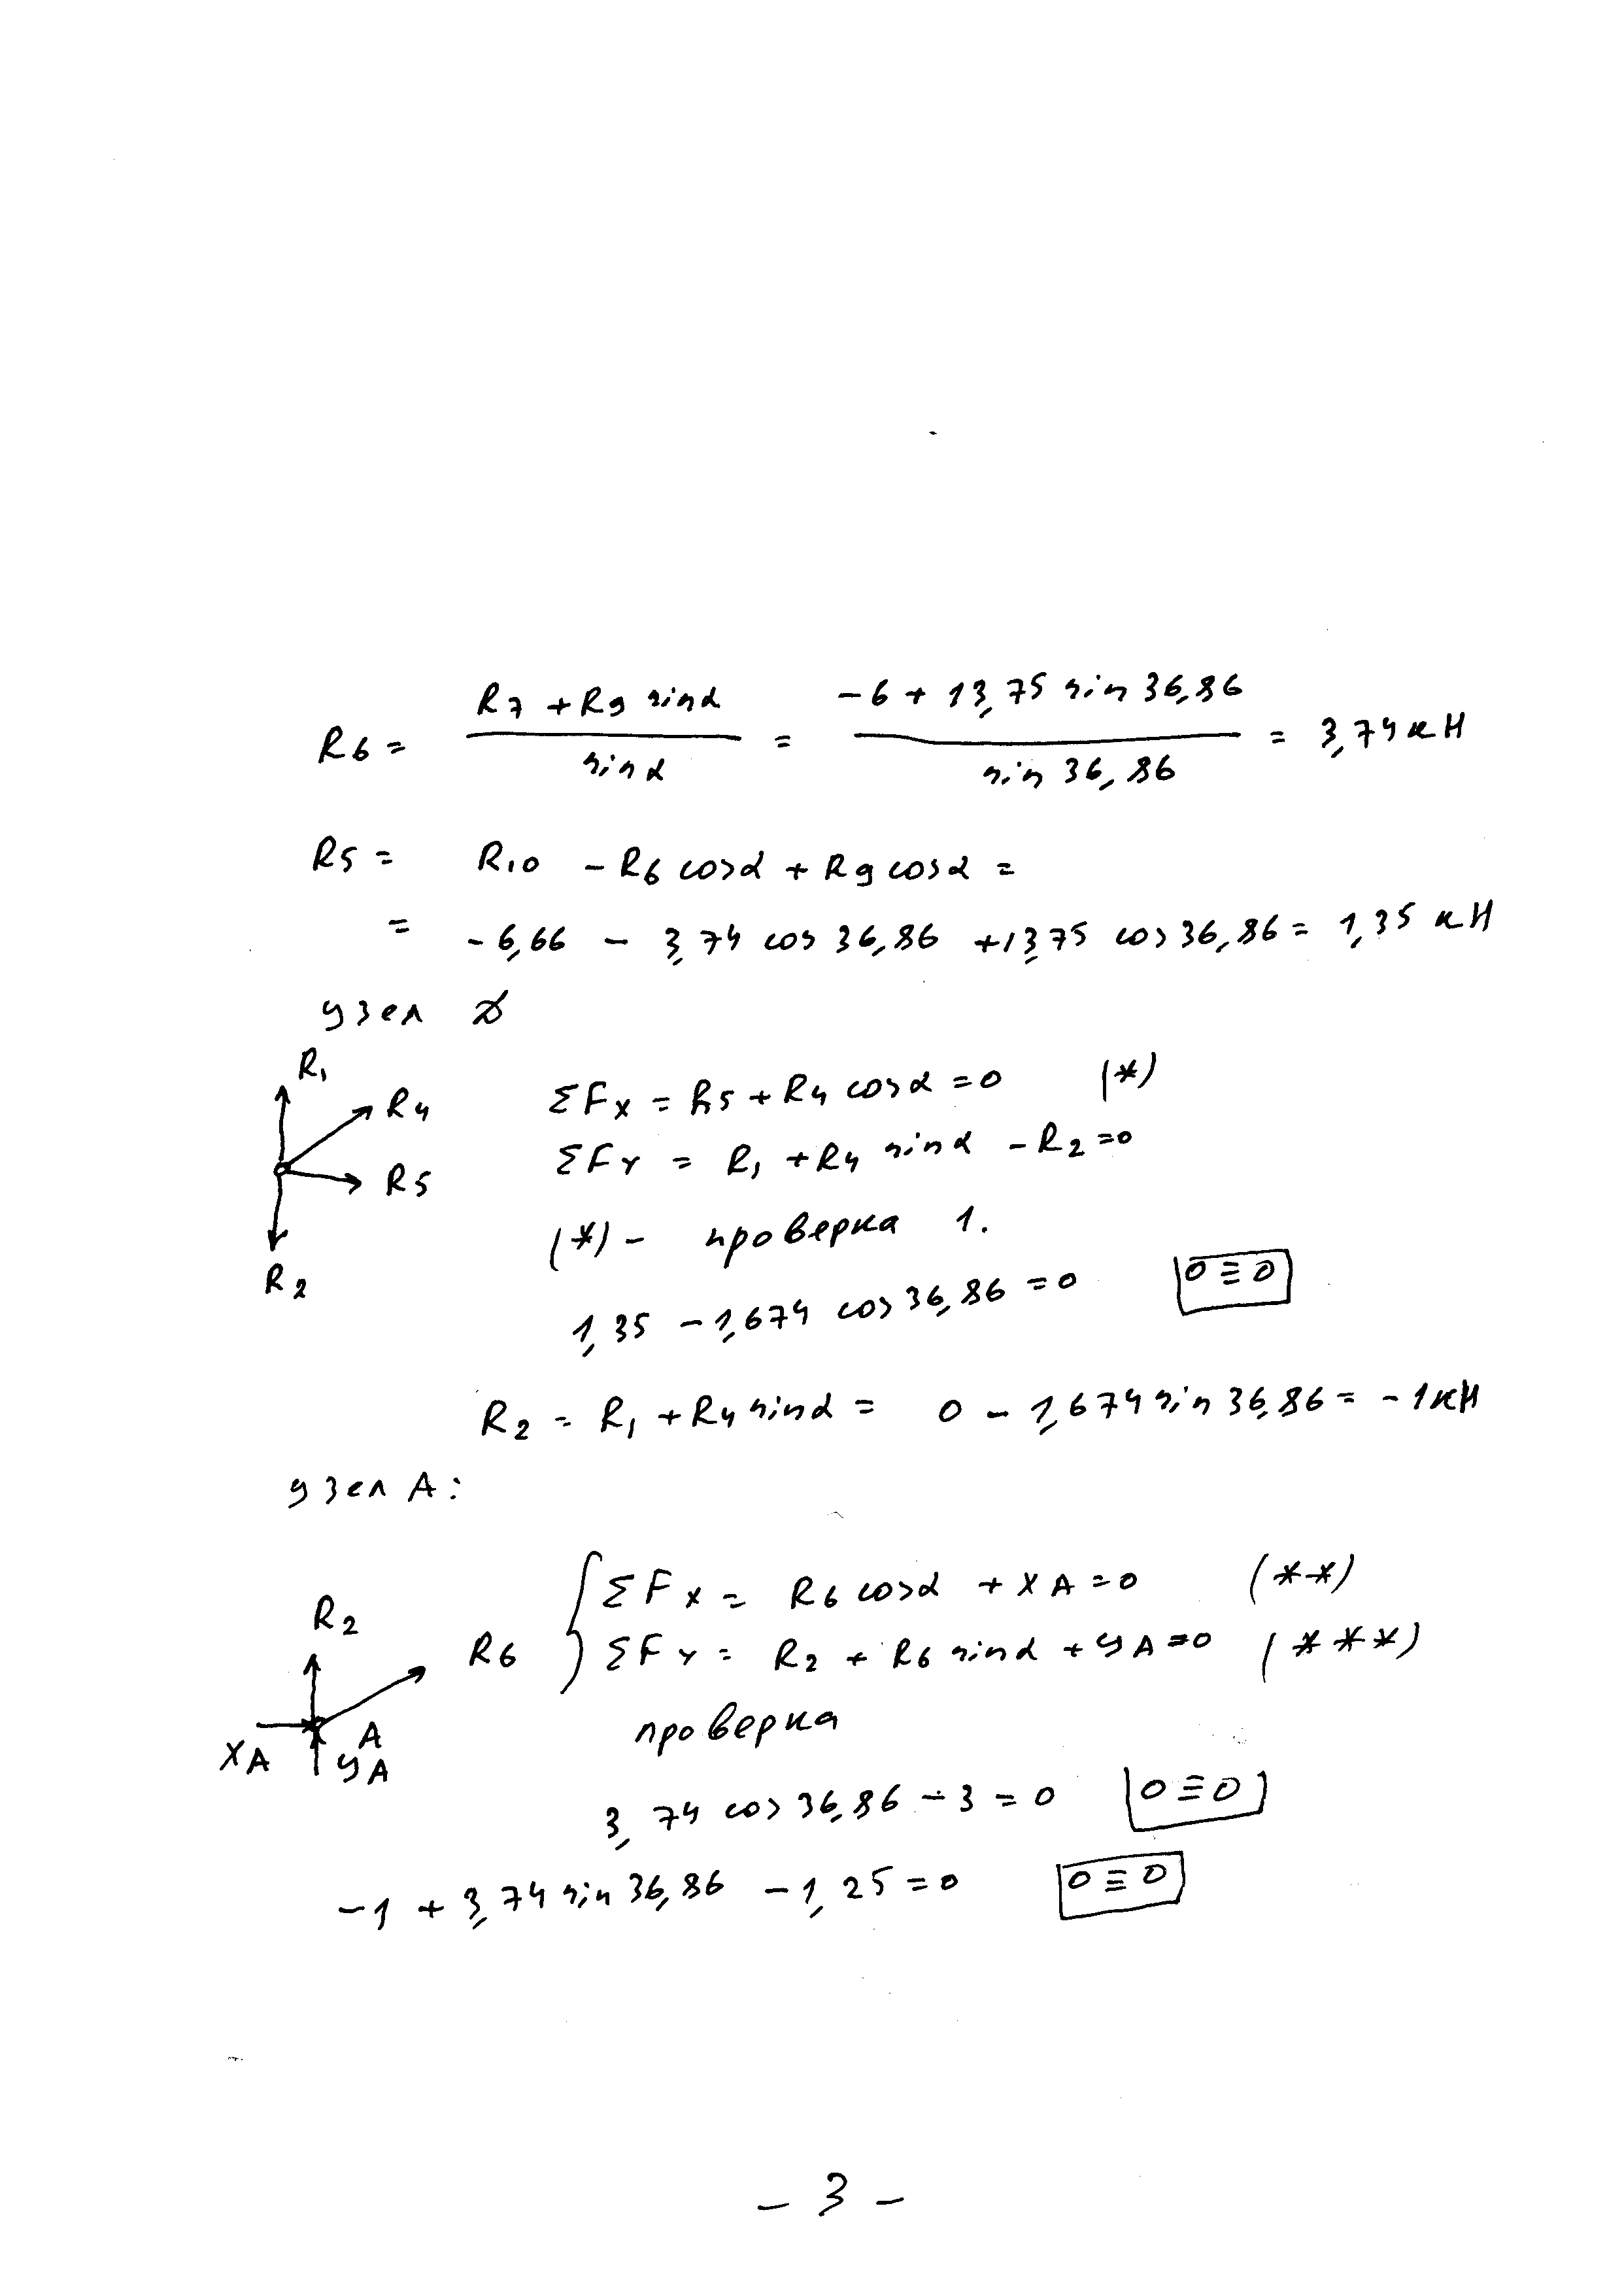 R6 = (R7 + R9 sinα) / sinα = (-6 + 13,75 sin 36,86) / sin 36,86 = 3,74 кН
R5 = R10 - R6 cosα + R9 cosα =
= -6,66 - 3,74 cos 36,86 + 13,75 cos 36,86 = 1,35 кН
узел D
R1
R4
R5
R2
ΣFx = R5 + R4 cosα = 0 (*)
ΣFY = R1 + R4 sinα - R2 = 0
(*) - проверка 1.
1,35 - 1,674 cos 36,86 = 0 0 ≡ 0
R2 = R1 + R4 sinα = 0 - 1,674 sin 36,86 = -1 кН
узел A:
R2
R6
XA
A
УA
ΣFx = R6 cosα + XA = 0 (**)
ΣFY = R2 + R6 sinα + УA = 0 (***)
проверка
3,74 cos 36,86 - 3 = 0 0 ≡ 0
-1 + 3,74 sin 36,86 - 1,25 = 0 0 ≡ 0
- 3 -